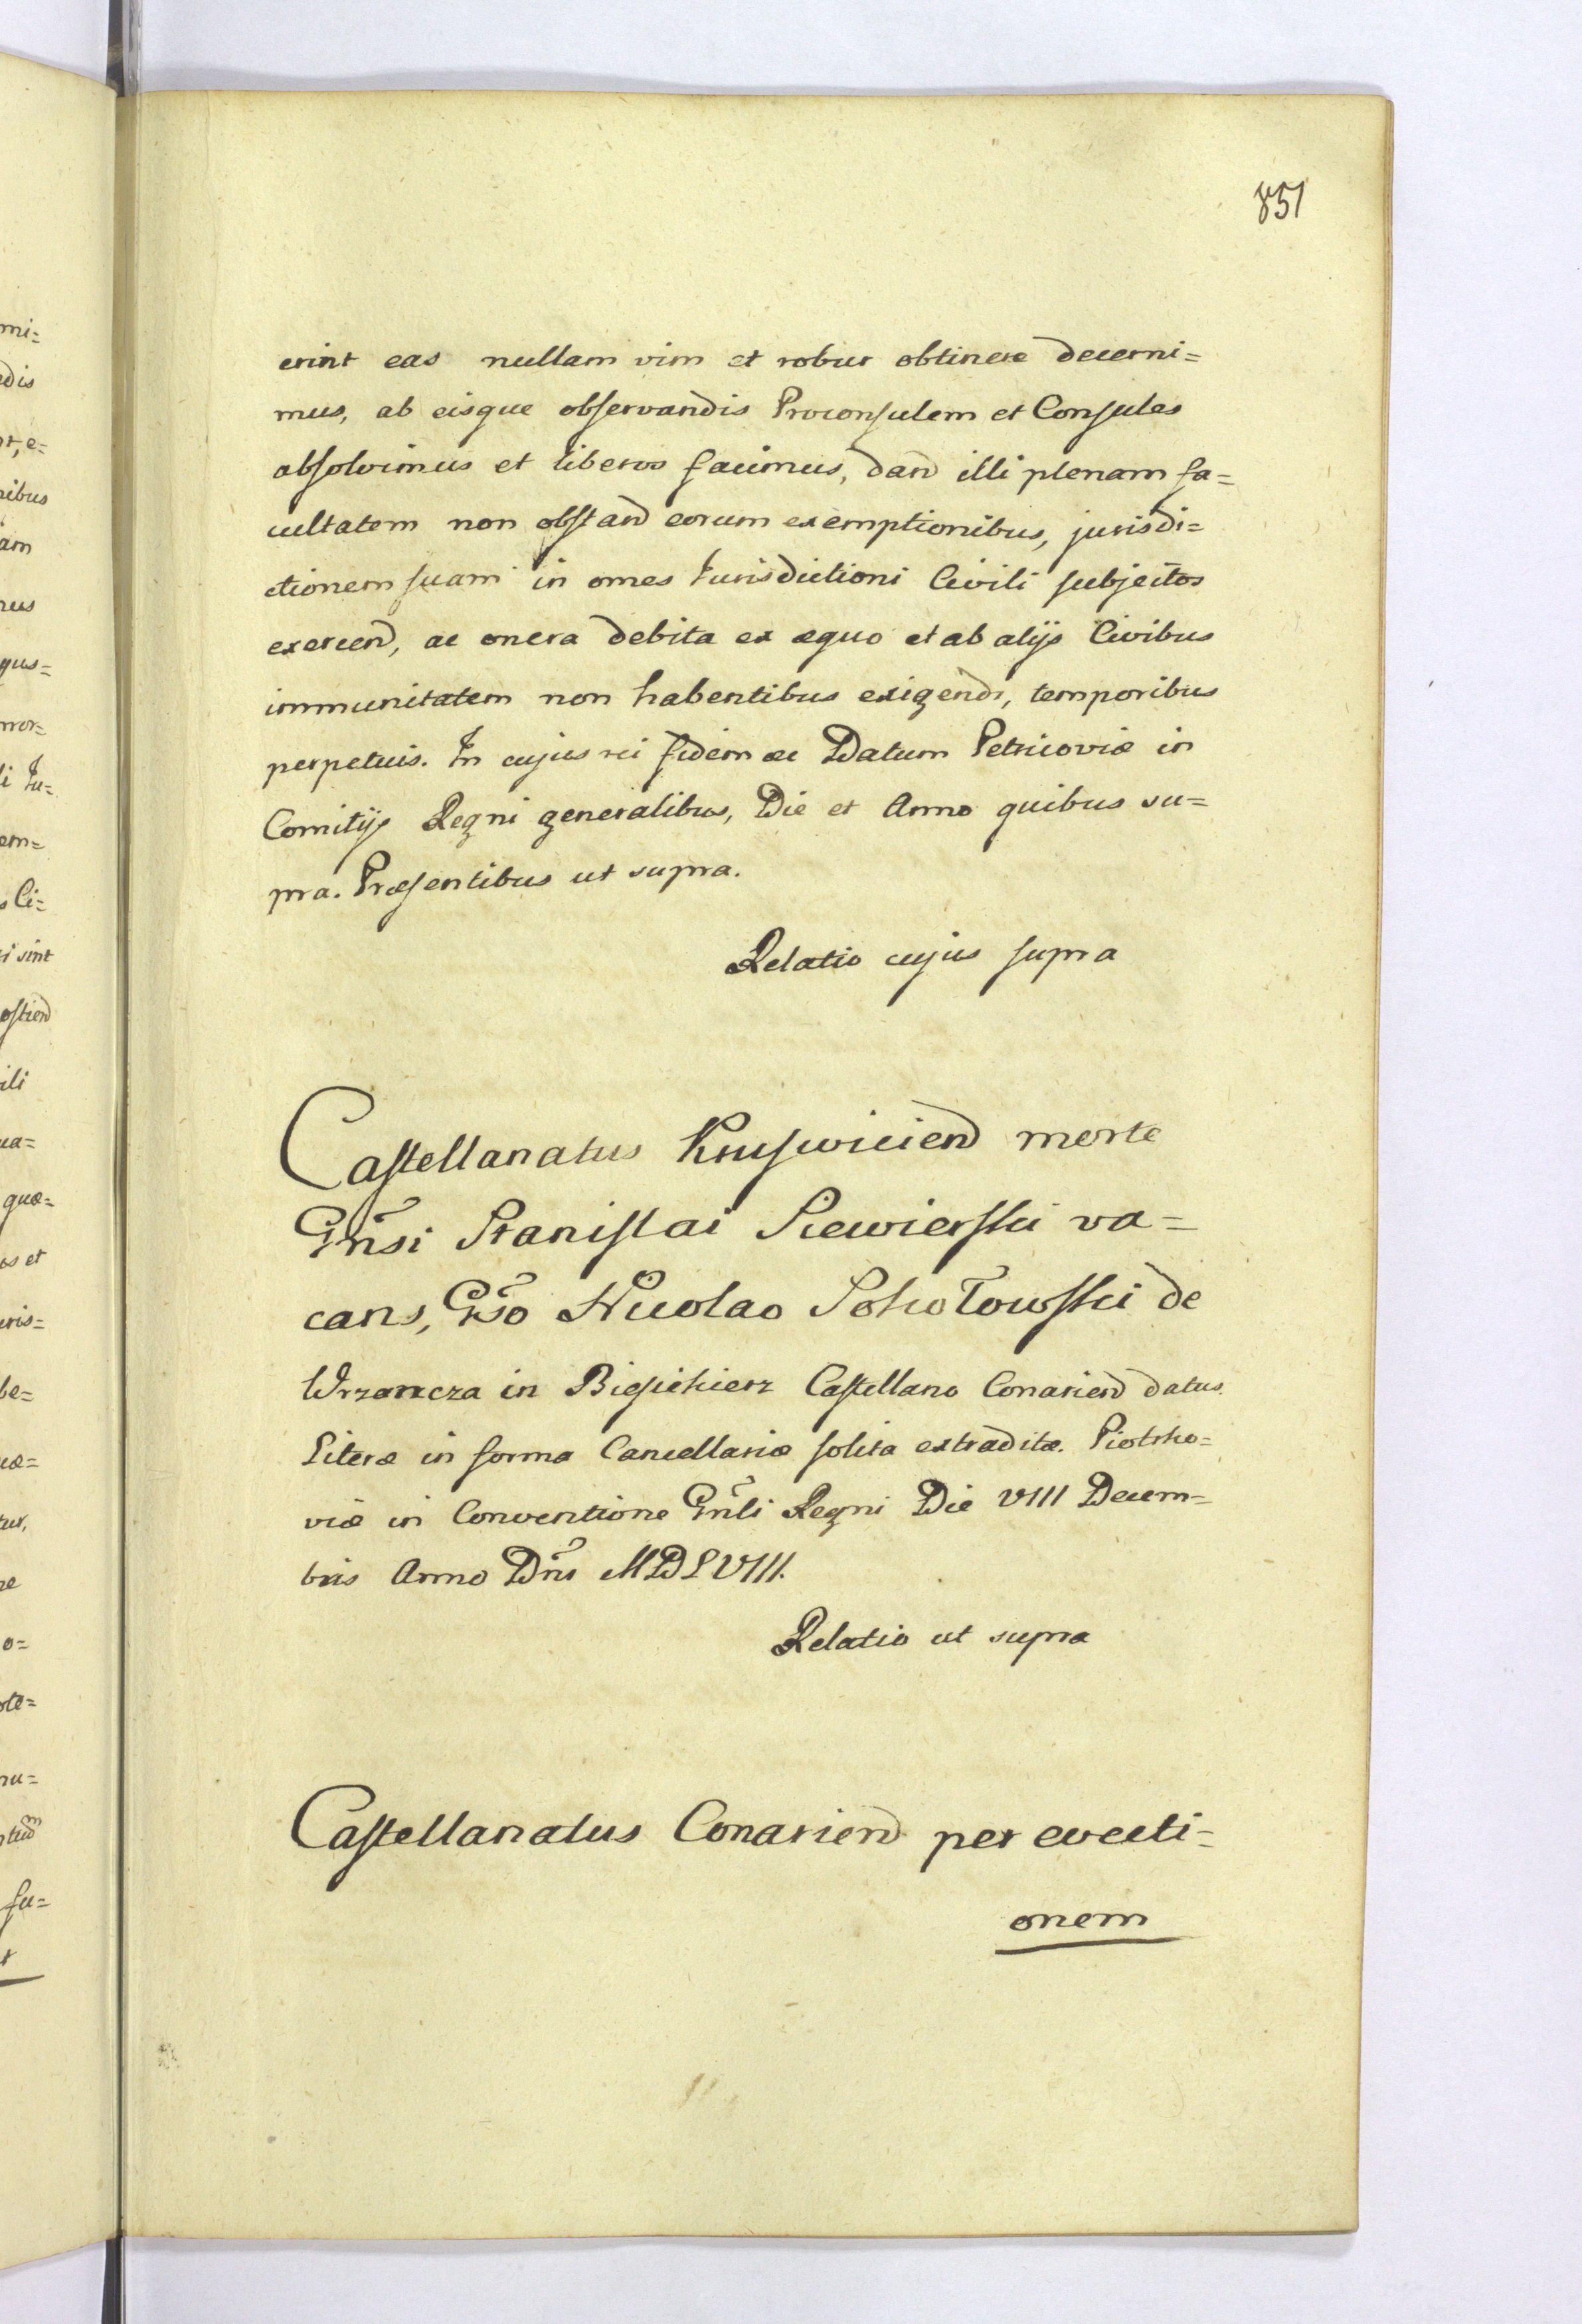 851
erint eas nullam vim et robur obtinere decerni=
mus, ab eisque observandis Proconsulem et Consules
absolvimus et liberos facimus, dand illi plenam fa=
cultatem non obstand eorum exemptionibus, jurisdi=
ctionem suam in omes Jurisdictioni Civili subjectos
exercend, ac onera debita ex æquo et ab alijs Civibus
immunitatem non habentibus exigendi, temporibus
perpetuis. In cujus rei fidem &c Datum Petricoviæ in
Comitijs Regni generalibus, Die et Anno quibus su=
pra. Præsentibus ut supra.
Relatio cujus supra
Castellanatus Kruswiciend morte
Gnsi Stanislai Siewierski va=
cans, Gso Nicolao Sokołowski de
Wrzancza in Castellano Conariend datus.
Literæ in forma Cancellariæ solita extraditæ. Piotrko=
viæ in Conventione Gnli Regni Die VIII Decem=
bris Anno Dni MDLVIII.
Relatio ut supra
Castellanatus Conariend per evecti=
onem
mi=
edis
t, e=
nibus
am
nus
gus=
mor=
i Ju=
em=
s Ci=
i sint
ostiend
ili
ua=
quæ=
os et
uris=
be=
uæ=
tur,
ne
o=
ote=
nu=
fu=
t